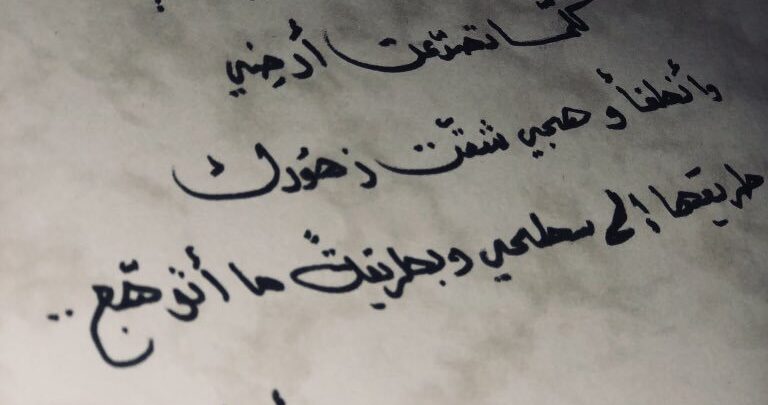 كلّما تصدّعت أرضي
وانطفأ وهجي شقّت زهورك
طريقها إلى سطحي وبطريقةٍ ما أتوهّج ..